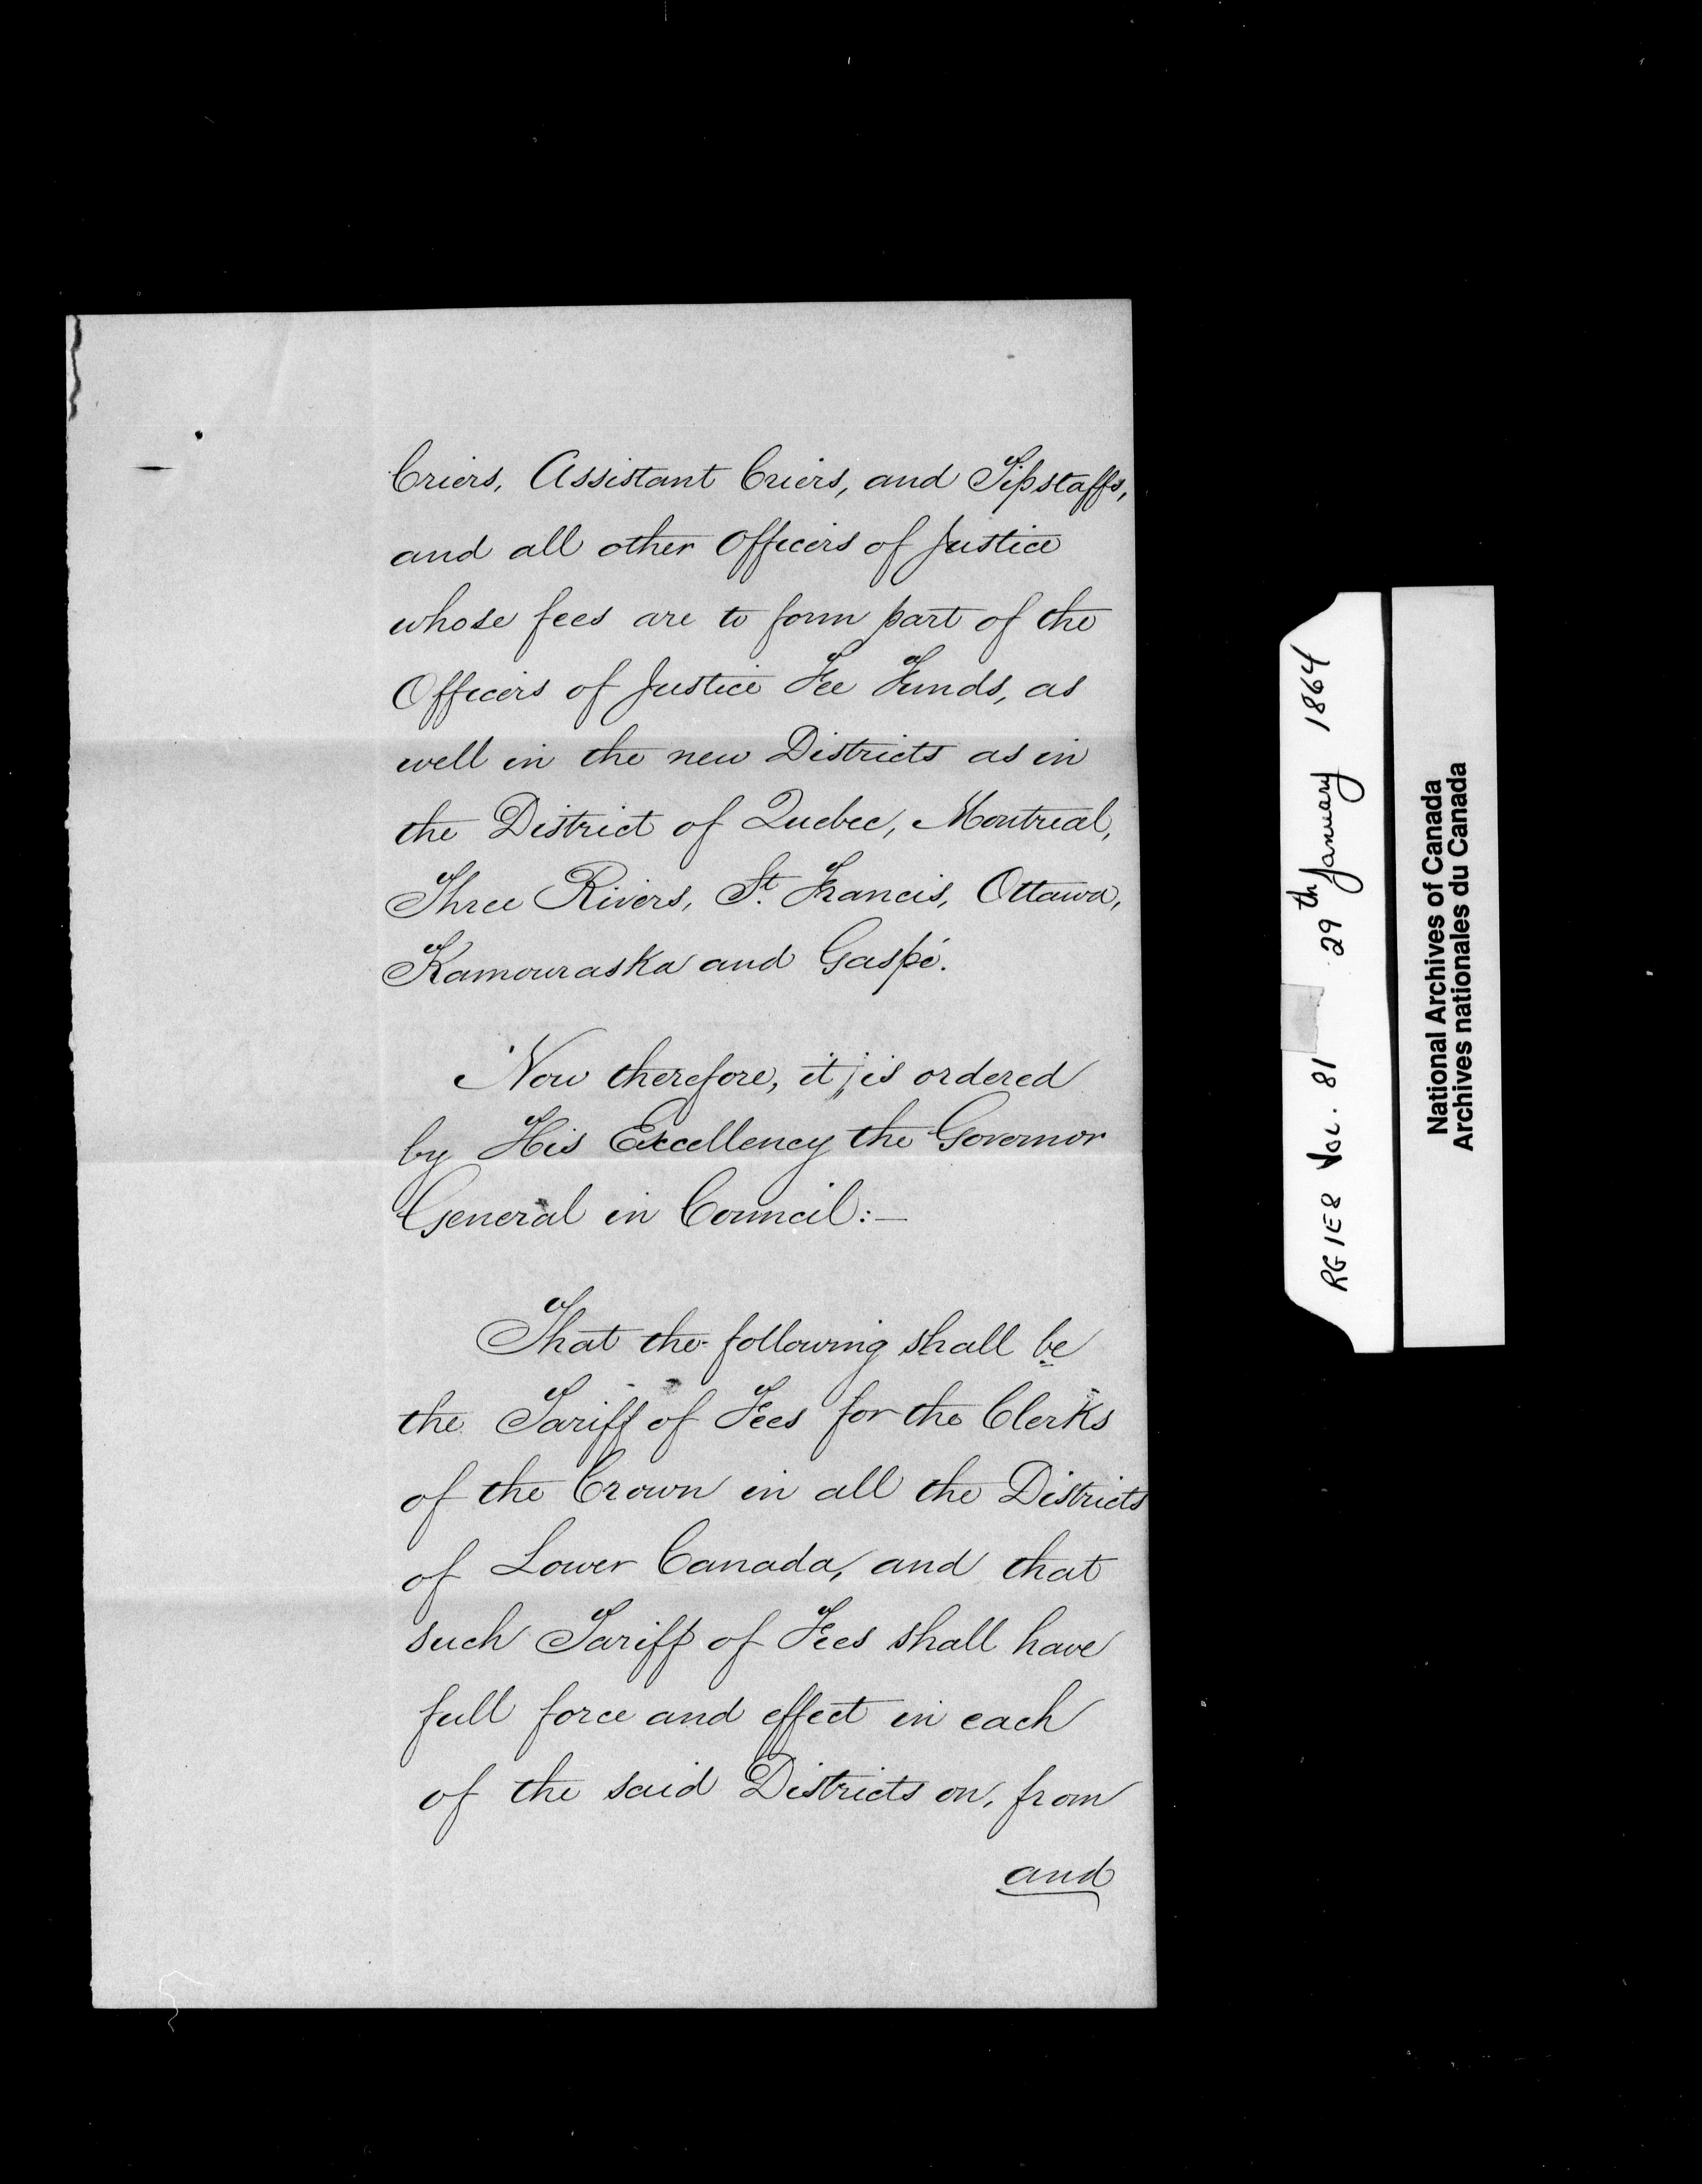 Criers, Assistant Criers, and Tipstaffs,
and all other Officers of Justice
whose fees are to form part of the
Officers of Justice Fee Funds, as
well in the new Districts as in
the District of Quebec, Montreal,
Three Rivers, St. Francis, Ottawa,
Kamouraska and Gaspé.
Now therefore, it is ordered
by His Excellency the Governor
General in Council:—
That the following shall be
the Tariff of Fees for the Clerks
of the Crown in all the Districts
of Lower Canada, and that
such Tariff of Fees shall have
full force and effect in each
of the said Districts on, from
and
RG 1E8 Vol. 81 29th January 1864
National Archives of Canada
Archives nationales du Canada